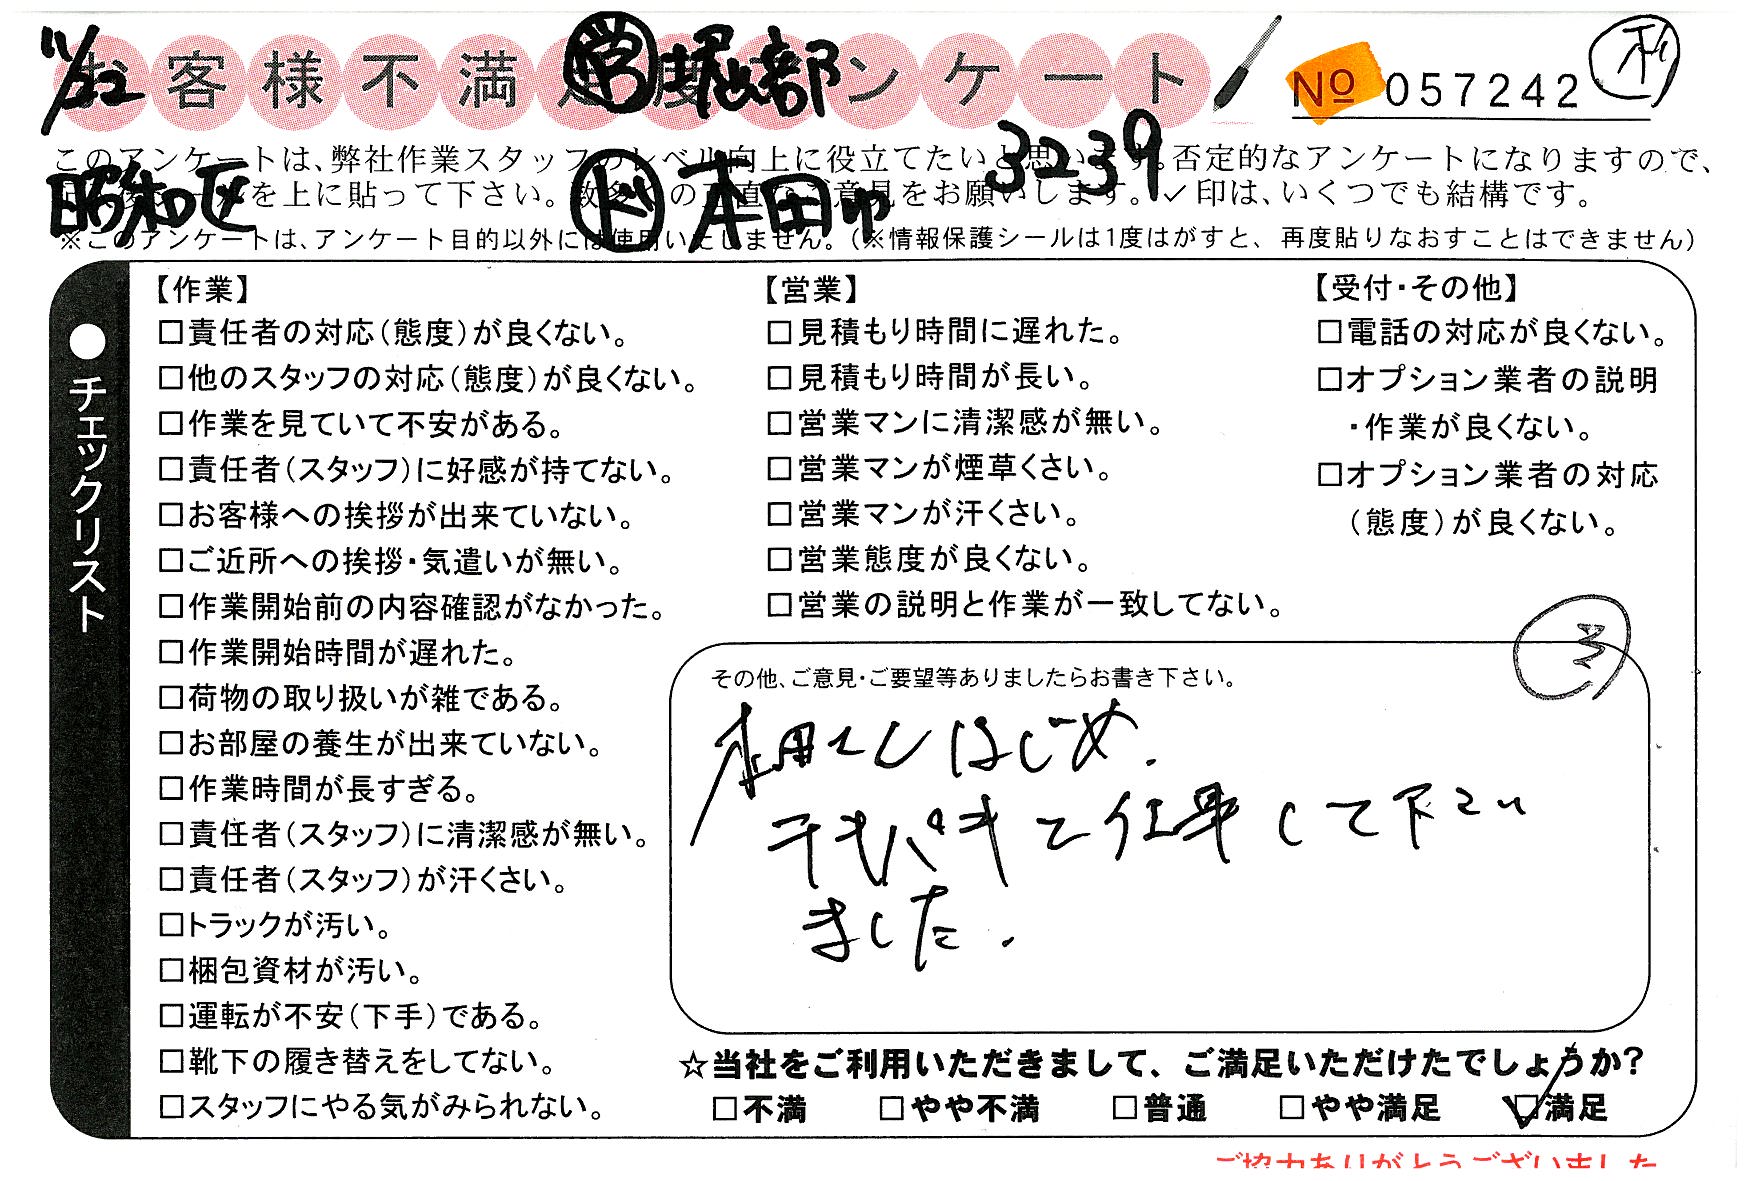 11/22
お客様不満足度アンケート
学 堀内部
No 057242
3239
このアンケートは、弊社作業スタッフのレベル向上に役立てたいと思います。否定的なアンケートになりますので、
を上に貼って下さい。数多くの正直なご意見をお願いします。✓印は、いくつでも結構です。
昭和区
ド 本田
※このアンケートは、アンケート目的以外には使用いたしません。（※情報保護シールは1度はがすと、再度貼りなおすことはできません）
●チェックリスト
【作業】
□責任者の対応（態度）が良くない。
□他のスタッフの対応（態度）が良くない。
□作業を見ていて不安がある。
□責任者（スタッフ）に好感が持てない。
□お客様への挨拶が出来ていない。
□ご近所への挨拶・気遣いが無い。
□作業開始前の内容確認がなかった。
□作業開始時間が遅れた。
□荷物の取り扱いが雑である。
□お部屋の養生が出来ていない。
□作業時間が長すぎる。
□責任者（スタッフ）に清潔感が無い。
□責任者（スタッフ）が汗くさい。
□トラックが汚い。
□梱包資材が汚い。
□運転が不安（下手）である。
□靴下の履き替えをしてない。
□スタッフにやる気がみられない。
【営業】
□見積もり時間に遅れた。
□見積もり時間が長い。
□営業マンに清潔感が無い。
□営業マンが煙草くさい。
□営業マンが汗くさい。
□営業態度が良くない。
□営業の説明と作業が一致してない。
【受付・その他】
□電話の対応が良くない。
□オプション業者の説明
・作業が良くない。
□オプション業者の対応
（態度）が良くない。
その他、ご意見・ご要望等ありましたらお書き下さい。
3
はじめ、
テキパキと仕事して下さい
ました。
☆当社をご利用いただきまして、ご満足いただけたでしょうか？
□不満 □やや不満 □普通 □やや満足 ☑満足
ご協力ありがとうございました